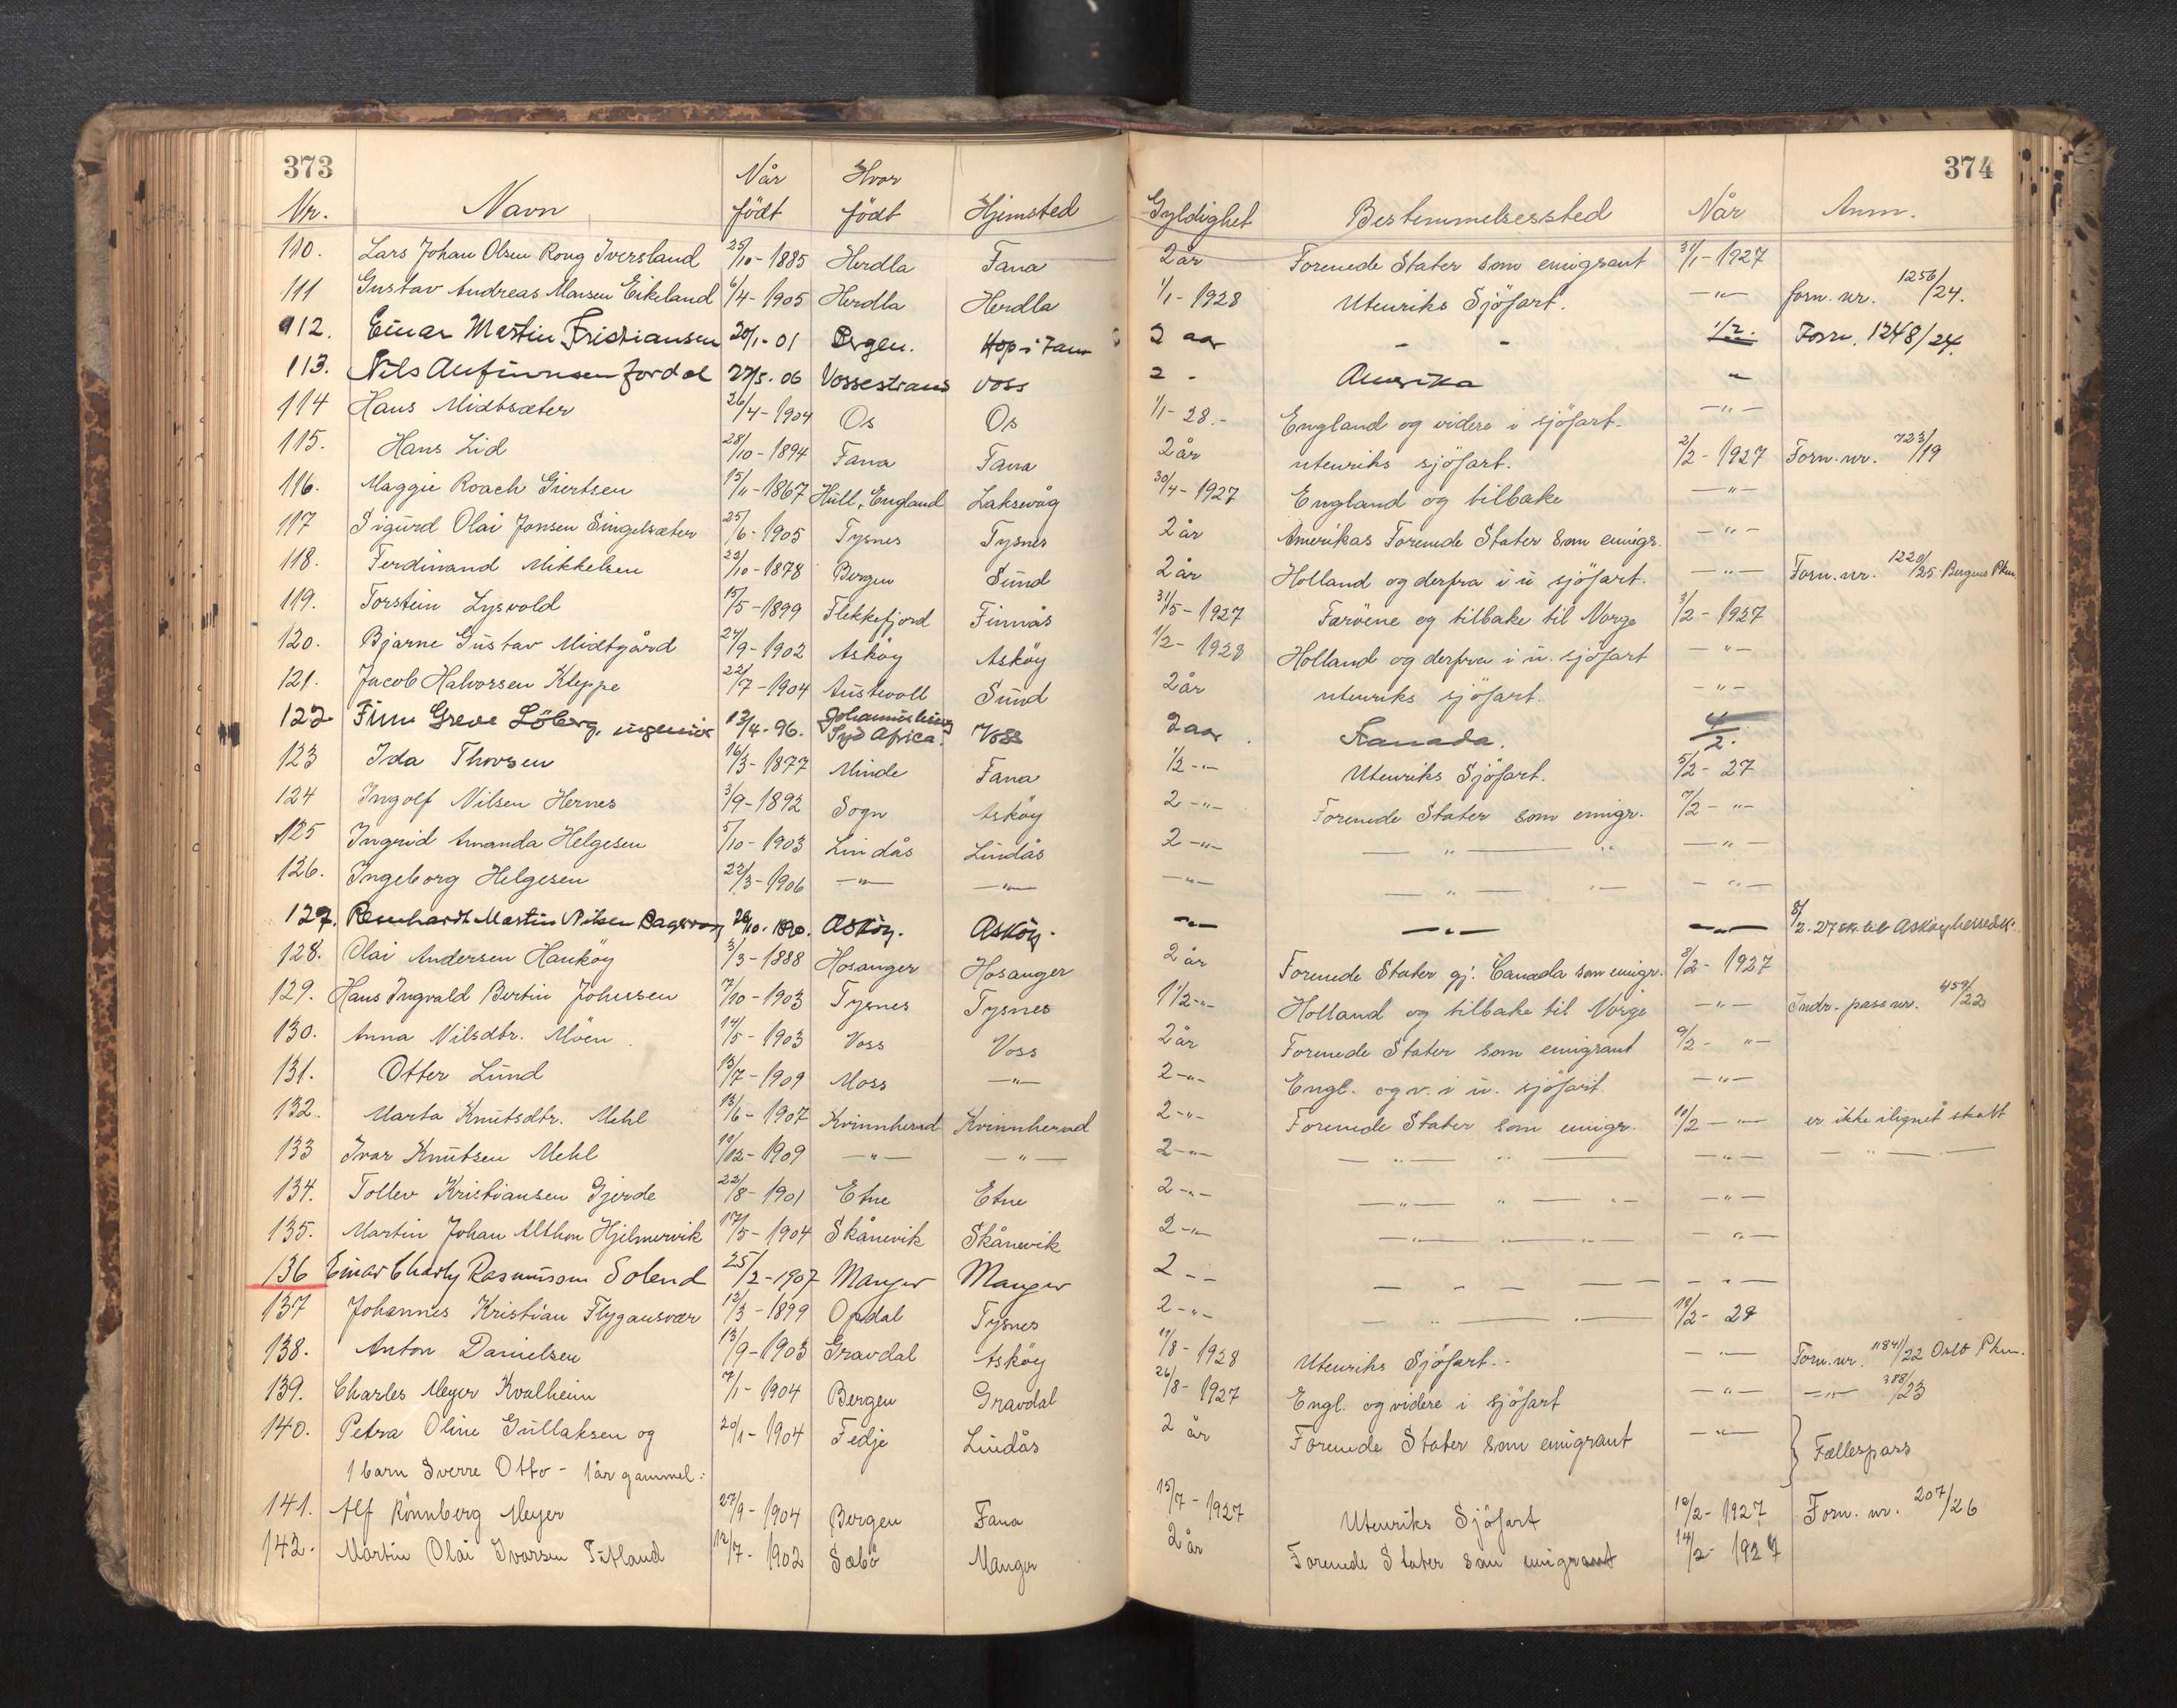 373
374
Nr. Navn Når født Hvor födt Hjemsted Gyldighet Bestemmelsessted Når Anm.
110. Lars Johan Olsen Rong Iversland 25/10-1885 Herdla Fana 2 år Forenede Stater som emigrant 31/1-1927
111 Gustav Andreas Monsen Eikeland 6/4-1905 Herdla Herdla 1/1-1928 Utenriks Sjöfart. —"— forn. nr. 1256/24.
112. Einar Martin Kristiansen 20/1-01 Bergen. Hop i Fana 2 aar - - 1/2. Forn. 1248/24.
113. Nils Anfinnsen Jordal 27/5.06 Vossestrand Voss 2 - Amerika "
114 Hans Midtsæter 26/4-1904 Os Os 1/1-28.- England og videre i sjöfart. —"—
115. Hans Lid 28/10-1894 Fana Fana 2 år utenriks sjöfart. 2/2-1927 Forn. nr. 723/19
116. Maggie Roach Giertsen 15/11-1867 Hull, England Laksevåg 30/4-1927 England og tilbake —"—
117 Sigurd Olai Jonsen Singelsæter 25/6-1905 Tysnes Tysnes 2 år Amerikas Forenede Stater som emigr. —"—
118. Ferdinand Mikkelsen 23/10-1878 Bergen Sund 2 år Holland og derfra i u sjöfart. —"— Forn. nr. 1220/25 Bergens Pkm
119. Torstein Lysvold 15/5-1899 Flekkefjord Finnås 31/5-1927 Færöene og tilbake til Norge 3/2-1927
120. Bjarne Gustav Midtgård 27/9-1902 Asköy Asköy 1/2-1928 Holland og derfra i u. sjöfart —"—
121. Jacob Halvorsen Kleppe 22/7-1904 Austevoll Sund 2 år utenriks sjöfart. —"—
122 Finn Greve Löberg, ingeniör 12/4-96. Johannisburg Syd Africa. Voss 2 aar. Kanada. 4/2.
123 Ida Thorsen 16/3-1877 Minde Fana 1/2 —"— Utenriks Sjöfart. 5/2-27
124 Ingolf Nilsen Hernes 3/9-1892 Sogn Asköy 2 —"— Forenede Stater som emigr. 7/2-"—
125 Ingrid Amanda Helgesen 5/10-1903 Lindås Lindås 2 —"— —"— " —"—
126. Ingeborg Helgesen 22/3-1906 —"— —"— —"— —"— "— —"—
127. Reinhardt Martin Nilsen 28/10.1890. Asköy. Asköy. —"— —"— —"— 8/2.27 sk. til Asköy
128. Olai Andersen Hanköy 3/3-1888 Hosanger Hosanger 2 år Forenede Stater gj. Canada som emigr. 8/2-1927
129. Hans Ingvald Bertin Johnsen 7/10-1903 Tysnes Tysnes 1 1/2 —"— Holland og tilbake til Norge —"— Indr. pass nr. 459/22
130. Anna Nilsdtr. Möen 14/5-1903 Voss Voss 2 år Forenede Stater som emigrant 9/2- "—
131. Otter Lund 13/7-1909 Moss —"— 2 —"— Engl. og v. i u. sjöfart. —"—
132. Marta Knutsdtr. Mehl 13/6-1907 Kvinnherad Kvinnherad 2 —"— Forenede Stater som emigr. 10/2 —"— er ikke ilignet skatt
133 Ivar Knutsen Mehl 10/12-1909 —"— —"— 2 —"— —"— " — —"— —"—
134. Tollev Kristiansen Gjerde 22/8-1901 Etne Etne 2 —"— —"— " "— —"—
135. Martin Johan Althon Hjelmervik 17/5-1904 Skånevik Skånevik 2 —"— —"— "— —"—
136 Einar Charly Rasmusson Solend 25/2-1907 Manger Manger 2 - - — - - — - — - —
137 Johannes Kristian Flygansvær 12/3-1899 Opdal Tysnes 2 —"— — " — 12/2-28
138. Anton Danielsen 13/9-1903 Gravdal Asköy 11/8-1928 Utenriks Sjöfart.- —"— Forn. nr. 11841/22 Oslo Pkm.
139. Charles Meyer Kvalheim 7/1-1904 Bergen Gravdal 26/8-1927 Engl. og videre i sjöfart —"— —"— 388/23
140. Petra Oline Gullaksen og 20/1-1904 Fedje Lindås 2 år Forenede Stater som emigrant —"— } Fællespass
1 barn Sverre Otto - 1 år gammel:
141. Alf Rönnberg Meyer 27/9-1904 Bergen Fana 15/7-1927 Utenriks Sjöfart 12/2-1927 Forn. nr. 207/26
142. Martin Olai Ivarsen Titland 12/7-1902 Sæbö Manger 2 år Forenede Stater som emigrant 14/2-1927